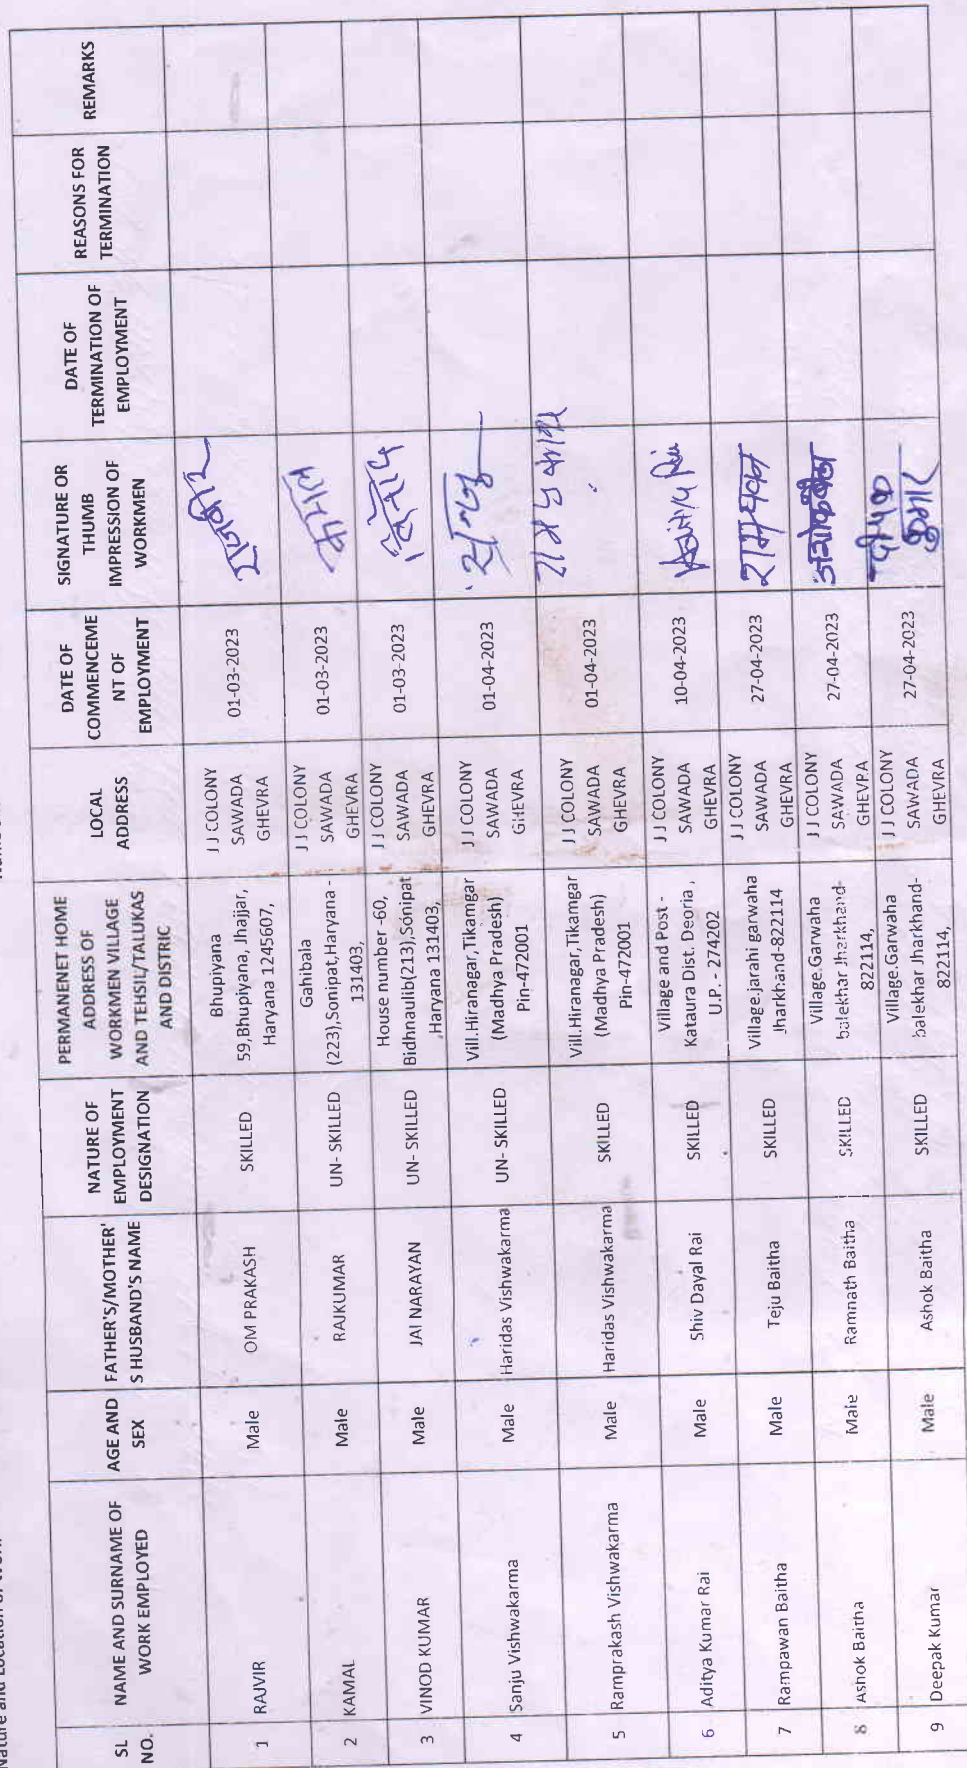 Nature and Location of Work
SL NO.
NAME AND SURNAME OF WORK EMPLOYED
AGE AND SEX
FATHER'S/MOTHER'S HUSBAND'S NAME
NATURE OF EMPLOYMENT DESIGNATION
PERMANENET HOME ADDRESS OF WORKMEN VILLAGE AND TEHSIL/TALUKAS AND DISTRIC
LOCAL ADDRESS
DATE OF COMMENCEMENT OF EMPLOYMENT
SIGNATURE OR THUMB IMPRESSION OF WORKMEN
DATE OF TERMINATION OF EMPLOYMENT
REASONS FOR TERMINATION
REMARKS
1 RAJVIR Male OM PRAKASH SKILLED
Bhupiyana
59,Bhupiyana, Jhajjar,
Haryana 1245607,
J J COLONY
SAWADA
GHEVRA
01-03-2023
राजबीर
2 KAMAL Male RAJKUMAR UN- SKILLED
Gahibala
(223),Sonipat,Haryana -
131403,
J J COLONY
SAWADA
GHEVRA
01-03-2023
कामल
3 VINOD KUMAR Male JAI NARAYAN UN- SKILLED
House number -60,
Bidhnaulib(213),Sonipat
,Haryana 131403,
J J COLONY
SAWADA
GHEVRA
01-03-2023
विनोद
4 Sanju Vishwakarma Male Haridas Vishwakarma UN- SKILLED
Vill.Hiranagar,Tikamgar
(Madhya Pradesh)
Pin-472001
J J COLONY
SAWADA
GHEVRA
01-04-2023
सन्जु
5 Ramprakash Vishwakarma Male Haridas Vishwakarma SKILLED
Vill.Hiranagar,Tikamgar
(Madhya Pradesh)
Pin-472001
J J COLONY
SAWADA
GHEVRA
01-04-2023
6 Aditya Kumar Rai Male Shiv Dayal Rai SKILLED
Village and Post -
Kataura Dist. Deoria ,
U.P. - 274202
J J COLONY
SAWADA
GHEVRA
10-04-2023
7 Rampawan Baitha Male Teju Baitha SKILLED
Village.jarahi garwaha
Jharkhand-822114
J J COLONY
SAWADA
GHEVRA
27-04-2023
8 Ashok Baitha Male Ramnath Baitha SKILLED
Village.Garwaha
balekhar Jharkhand-
822114,
J J COLONY
SAWADA
GHEVRA
27-04-2023
9 Deepak Kumar Male Ashok Baitha SKILLED
Village.Garwaha
balekhar Jharkhand-
822114,
J J COLONY
SAWADA
GHEVRA
27-04-2023
दीपक
कुमार